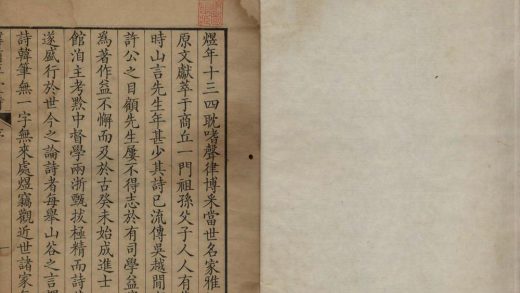 煜年十三四耽嗜聲律博采當世名家雅
原文獻萃于商丘一門祖孫父子人人有
時山言先生年甚少其詩已流傳吳越間
許公之目顧先生屢不得志於有司學益
為著作益不懈而及於古癸未始成進士
館洎主考黔中督學兩浙甄拔極精而詩
遂盛行於世今之論詩者每舉山谷之言
詩韓筆無一字無來處煜竊觀近世諸家
序